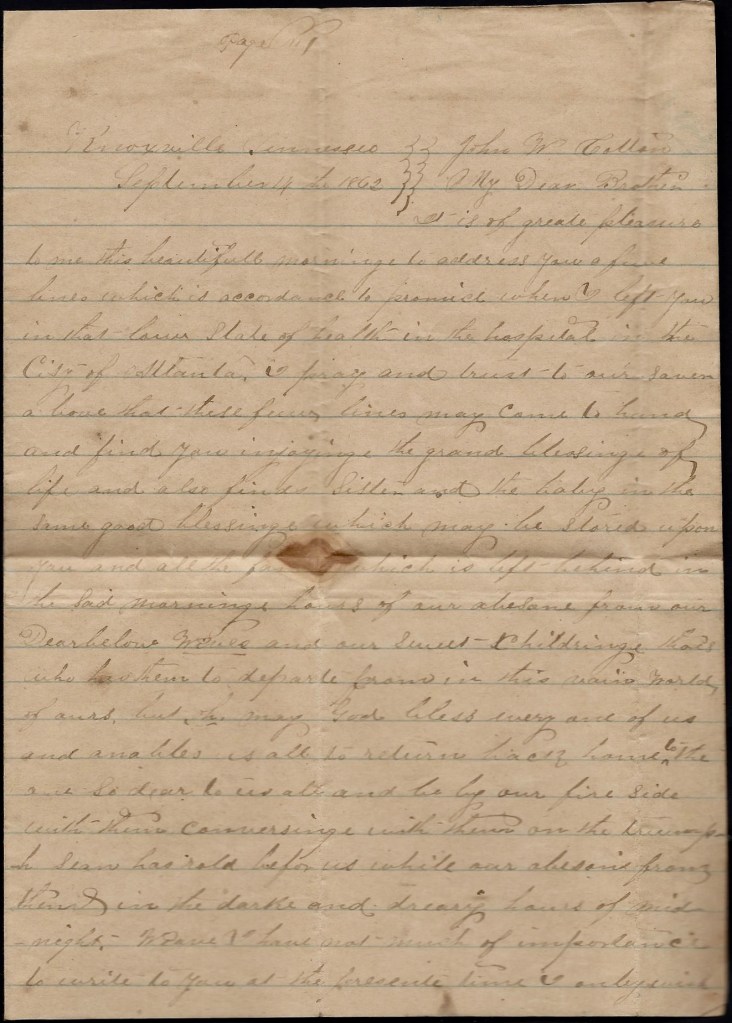 Page 1
Knoxville Tennessee }} John W. Cotton
September 14th 1862 }} My Dear Brother
It is of greate pleasure
to me this beautifull morninge to address you a fiew
lines which is accordance to promice when I left you
in that lower State of health in the hospital in the
City of Atlanta, I pray and trust to our Saver
above that these fiew lines may come to hand
and find you injoyinge the grand blessinge of
life and also finds Sister and the baby in the
same good blessinge which may be Stored upon
you and all the which is left behind in
the Sad morninge hours of our absane from our
Dearbelove Wives and our Sweet Childringe thats
who hw them to departe from in this vain World
of ours, but Oh may God bless every one of us
and anables is all to return back home to the
one So dear to us all and be by our fire Side
with them conversinge with them on the triump
h Sean has rold befor us while our absene from
them in the darke and dreary hours of mid
-night. I have not much of importance
to write to you at the presente time I only wish